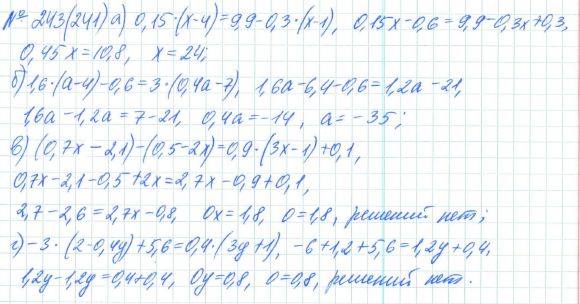 № 243(241) а) 0,15·(x-4)=9,9-0,3·(x-1), 0,15x-0,6=9,9-0,3x+0,3,
0,45x=10,8, x=24;
б) 1,6·(a-4)-0,6=3·(0,4a-7), 1,6a-6,4-0,6=1,2a-21,
1,6a-1,2a=7-21, 0,4a=-14, a=-35;
в) (0,7x-2,1)-(0,5-2x)=0,9·(3x-1)+0,1,
0,7x-2,1-0,5+2x=2,7x-0,9+0,1,
2,7-2,6=2,7x-0,8, 0x=1,8, 0=1,8, решений нет;
г) -3·(2-0,4y)+5,6=0,4·(3y+1), -6+1,2+5,6=1,2y+0,4,
1,2y-1,2y=0,4+0,4, 0y=0,8, 0=0,8, решений нет.